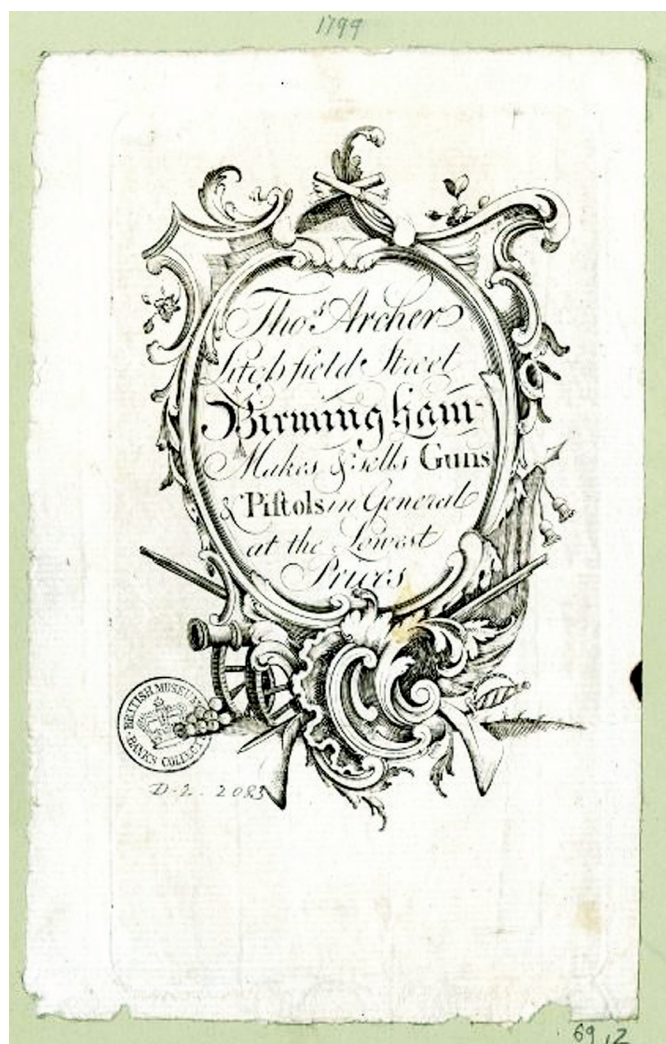 1799
Thos. Archer
Litchfield Street
Birmingham
Makes & sells Guns
& Piſtols in General
at the Lowest
Prices
BRITISH MUSEUM
BANKS COLLECT
D-2. 2083
69,2